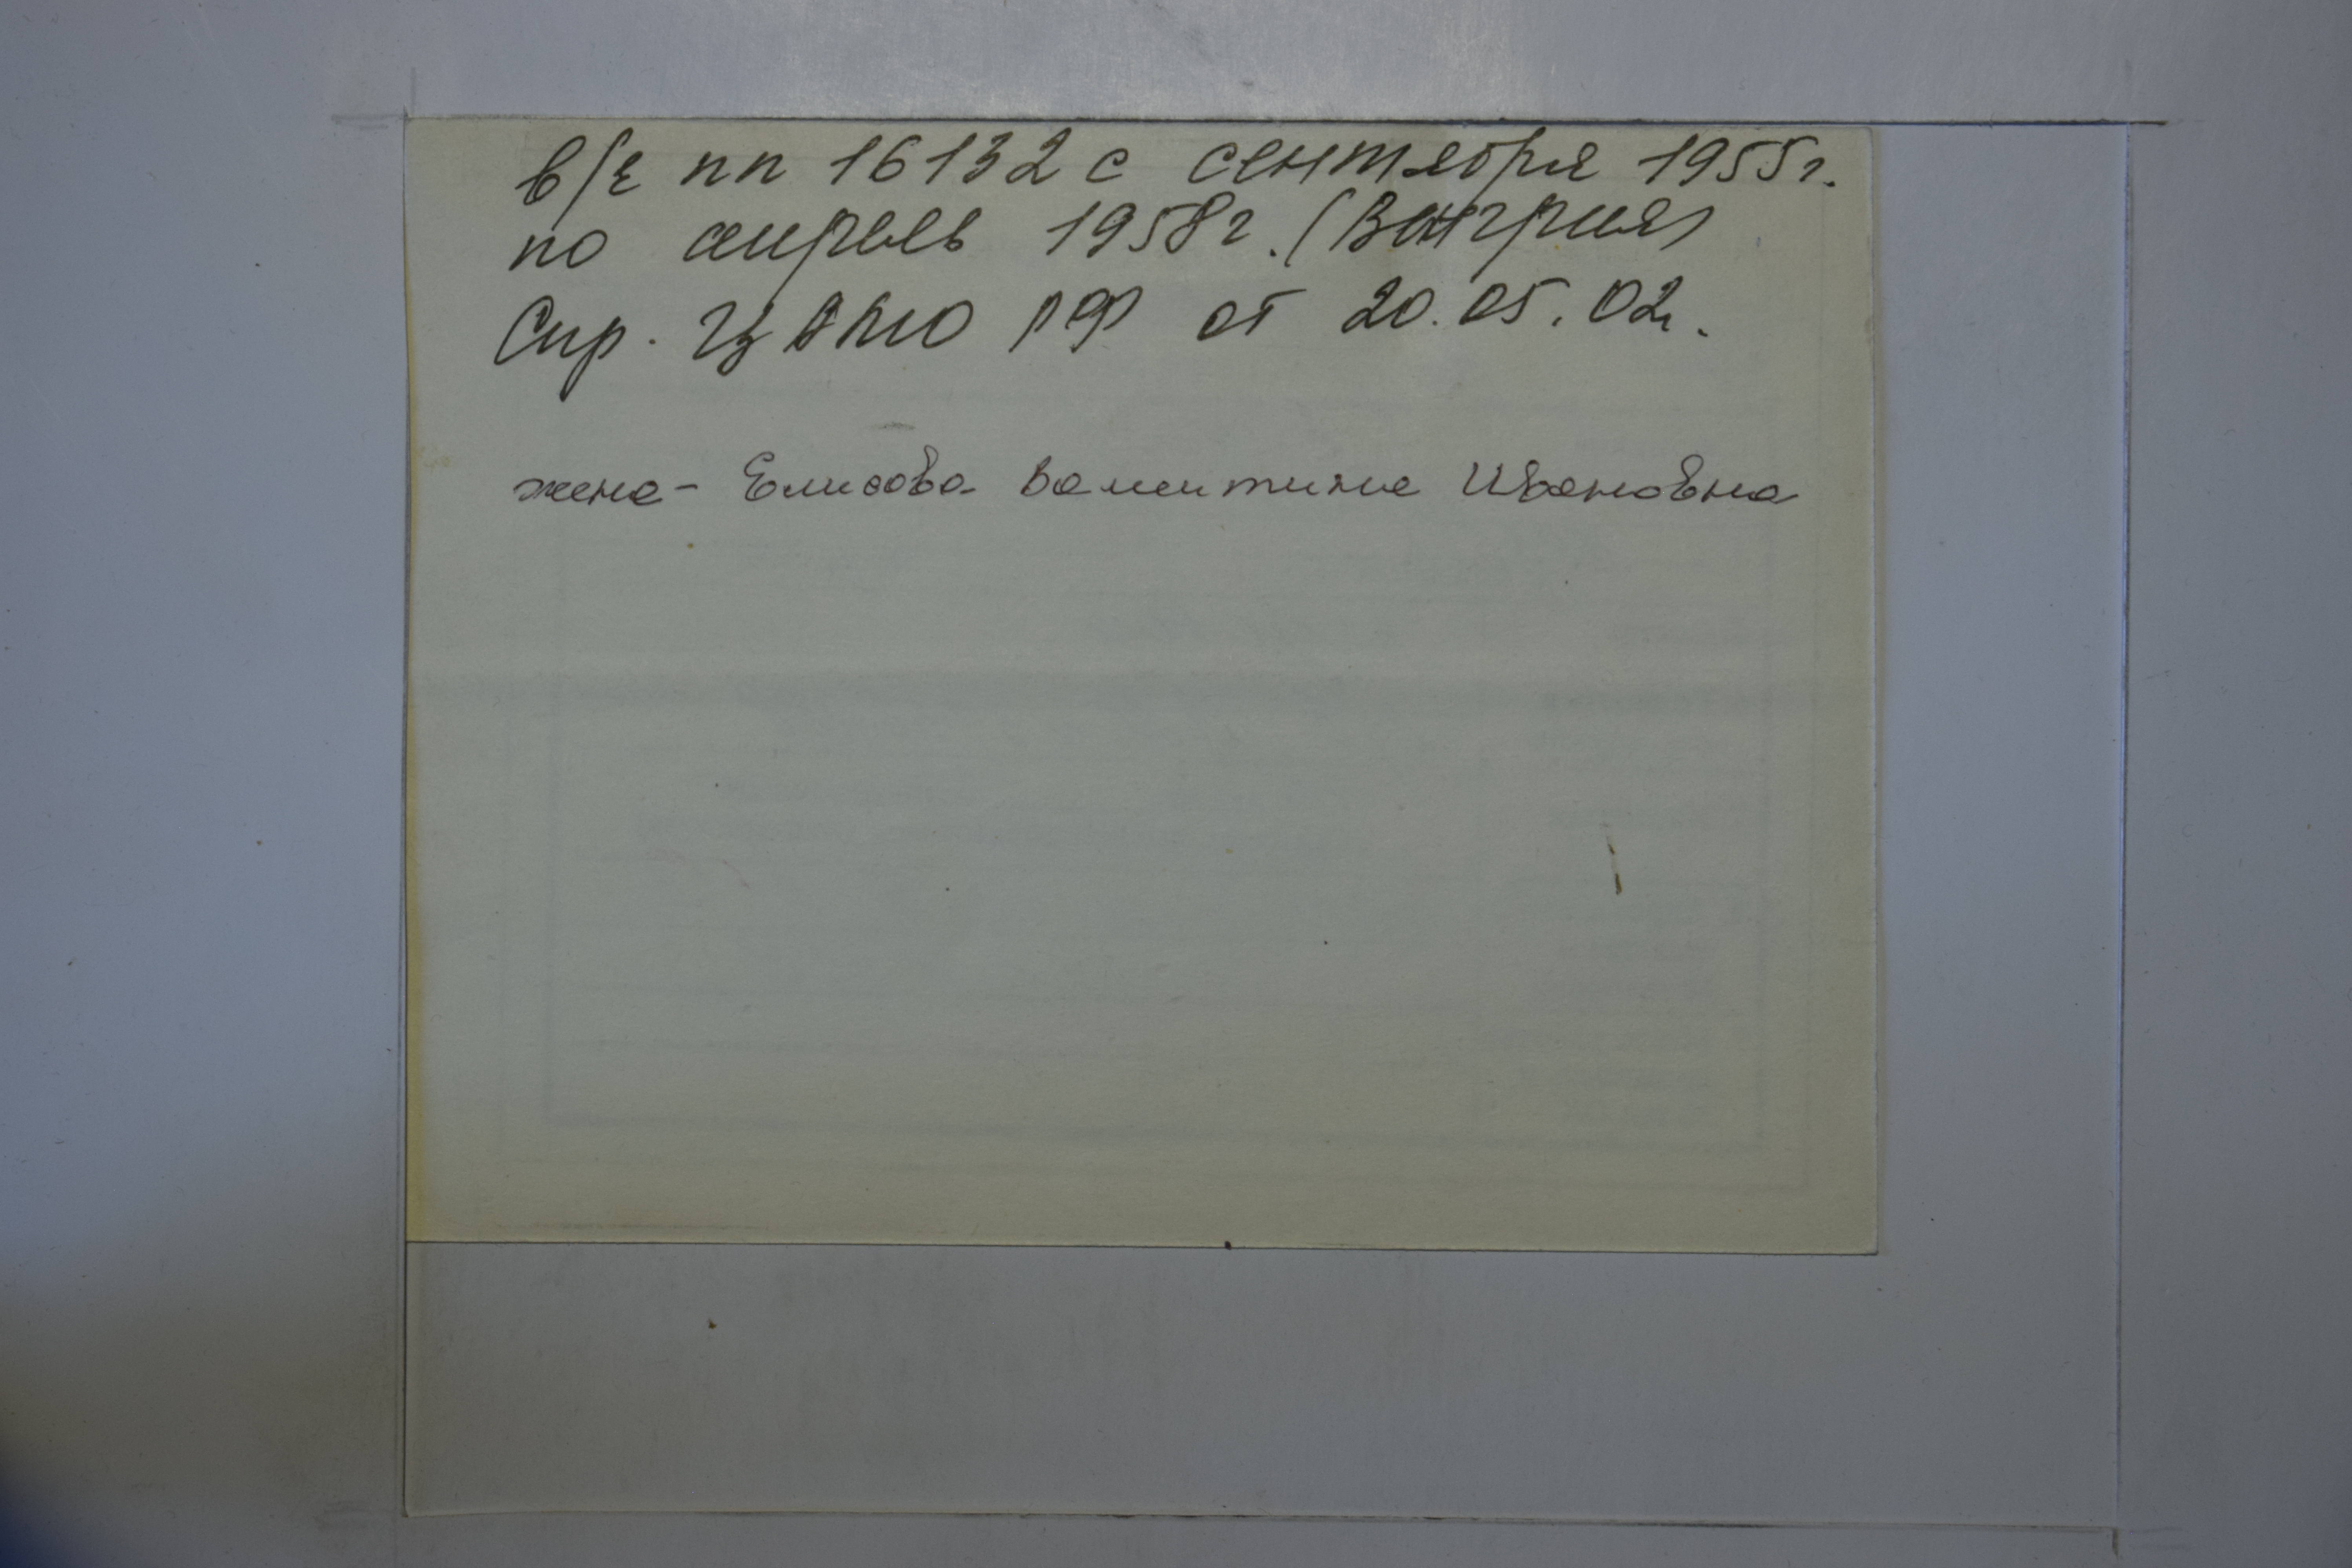 в/ч пп 16132 с сентября 1955г.
по апрель 1958г. (Венгрия)
Спр. ЦАМО РФ от 20.05.02г.
жена - Елисова Валентина Ивановна